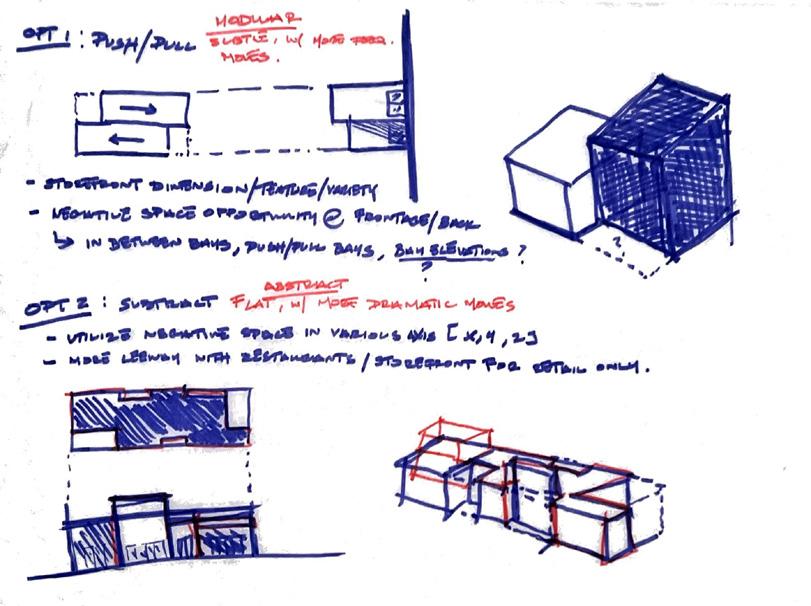 MODULAR
OPT 1 : PUSH/PULL SUBTLE, W/ MORE FREQ. MOVES.
- STOREFRONT DIMENSION/FEATURE/VARIETY
- NEGATIVE SPACE OPPORTUNITY @ FRONTAGE/BACK
↳ IN BETWEEN BAYS, PUSH/PULL BAYS, BAY ELEVATIONS ?
?
?
ABSTRACT
OPT 2 : SUBTRACT FLAT, W/ MORE DRAMATIC MOVES
- UTILIZE NEGATIVE SPACE IN VARIOUS AXIS [X, Y, Z]
- MORE LEEWAY WITH RESTAURANTS/STOREFRONT FOR RETAIL ONLY.